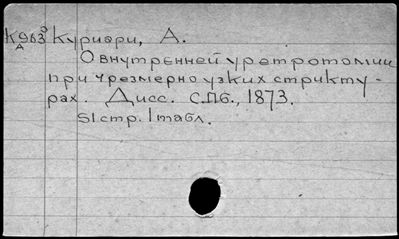 К963 Куриари, А.
А
О внутренней уретротомии
при чрезмерно узких стрикту-
рах. Дисс. С.П.б., 1873.
51 стр. 1 табл.